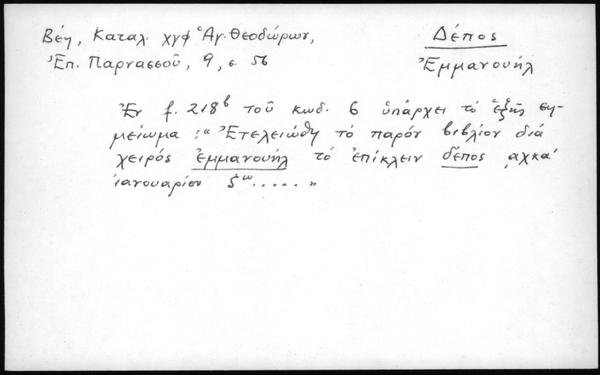 Βέη, Καταλ. χγφ Ἁγ. Θεοδώρων,
Ἐπ. Παρνασσοῦ, 9, σ. 56
Δέπος
Ἐμμανουήλ
Ἐν f. 218β τοῦ κωδ. 6 ὑπάρχει τὸ ἑξῆς ση-
μείωμα : « Ἐτελειώθη τὸ παρόν βιβλίον διά
χειρός ἐμμανουήλ τὸ ἐπίκλειν δέπος ͵αχκα΄
ἰανουαρίου ζω ..... »